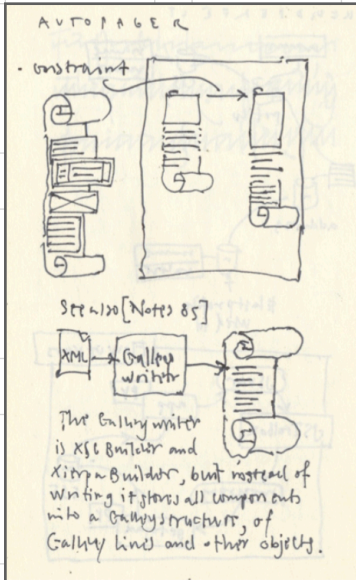 AUTOPAGER
• constraint
See also [Notes 85]
XML
Galley
Writer
The Galley writer
is XSL Builder and
Builder, but instead of
writing it stores all components
into a Galley structure, of
Galley lines and other objects.